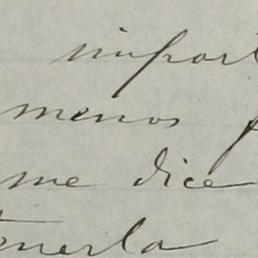 import
menos
me dice
tenerla